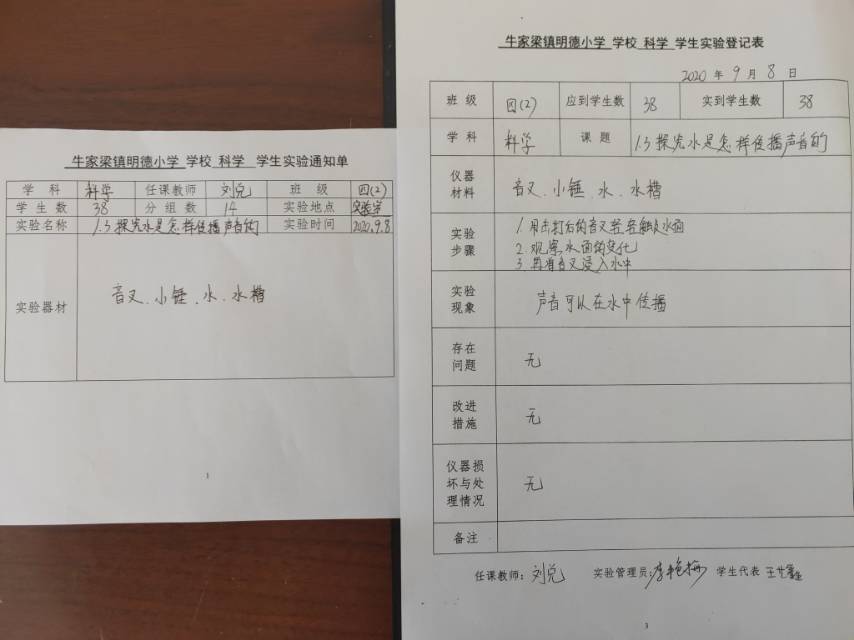 牛家梁镇明德小学 学校 科学 学生实验通知单
学科 科学 任课教师 刘兑 班级 四(2)
学生数 38 分组数 14 实验地点 实验室
实验名称 1.3探究水是怎样传播声音的 实验时间 2020.9.8
实验器材 音叉、小锤、水、水槽
1
牛家梁镇明德小学 学校 科学 学生实验登记表
2020 年 9 月 8 日
班级 四(2) 应到学生数 38 实到学生数 38
学科 科学 课题 1.3探究水是怎样传播声音的
仪器材料 音叉、小锤、水、水槽
实验步骤 1.用击打后的音叉轻轻触及水面
2.观察水面的变化
3.再将音叉浸入水中
实验现象 声音可以在水中传播
存在问题 无
改进措施 无
仪器损坏与处理情况 无
备注
任课教师：刘兑 实验管理员：李艳梅 学生代表